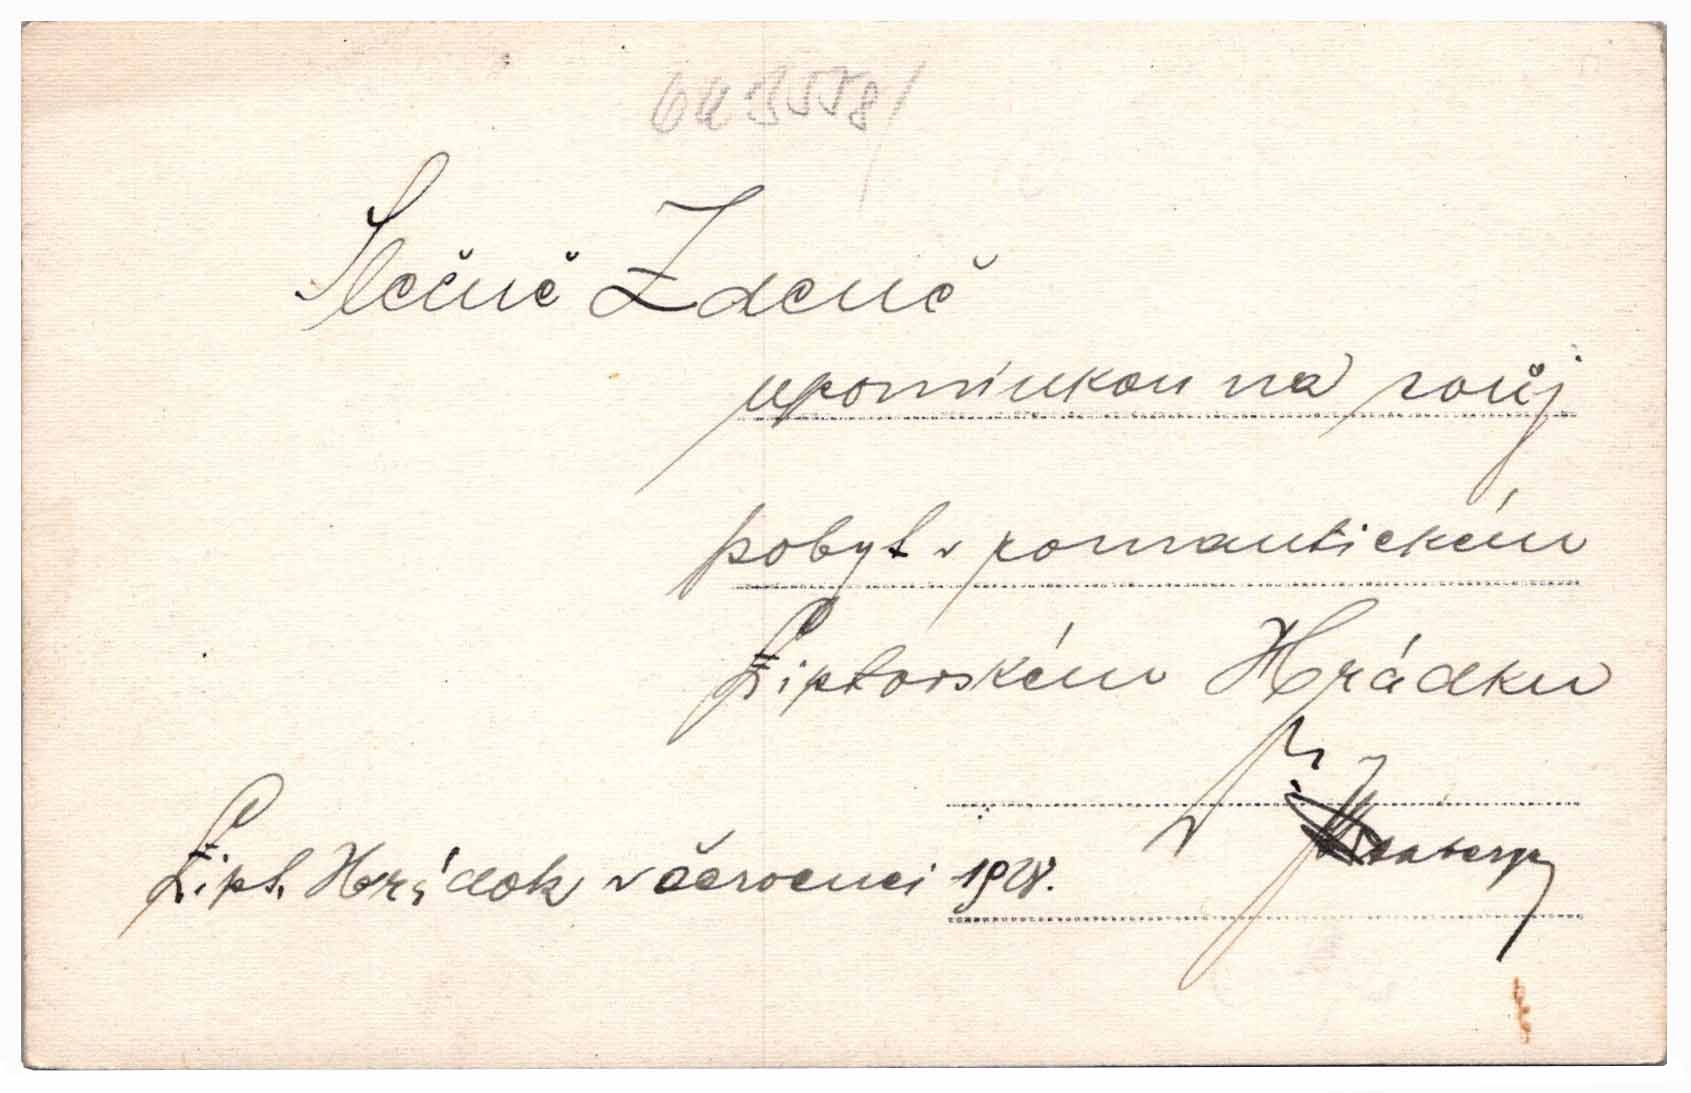 643558/
Slečně Zdeně
upomínkou na svůj
pobyt v romantickém
Liptovském Hrádku
Lipt. Hrádok v červenci 1928.